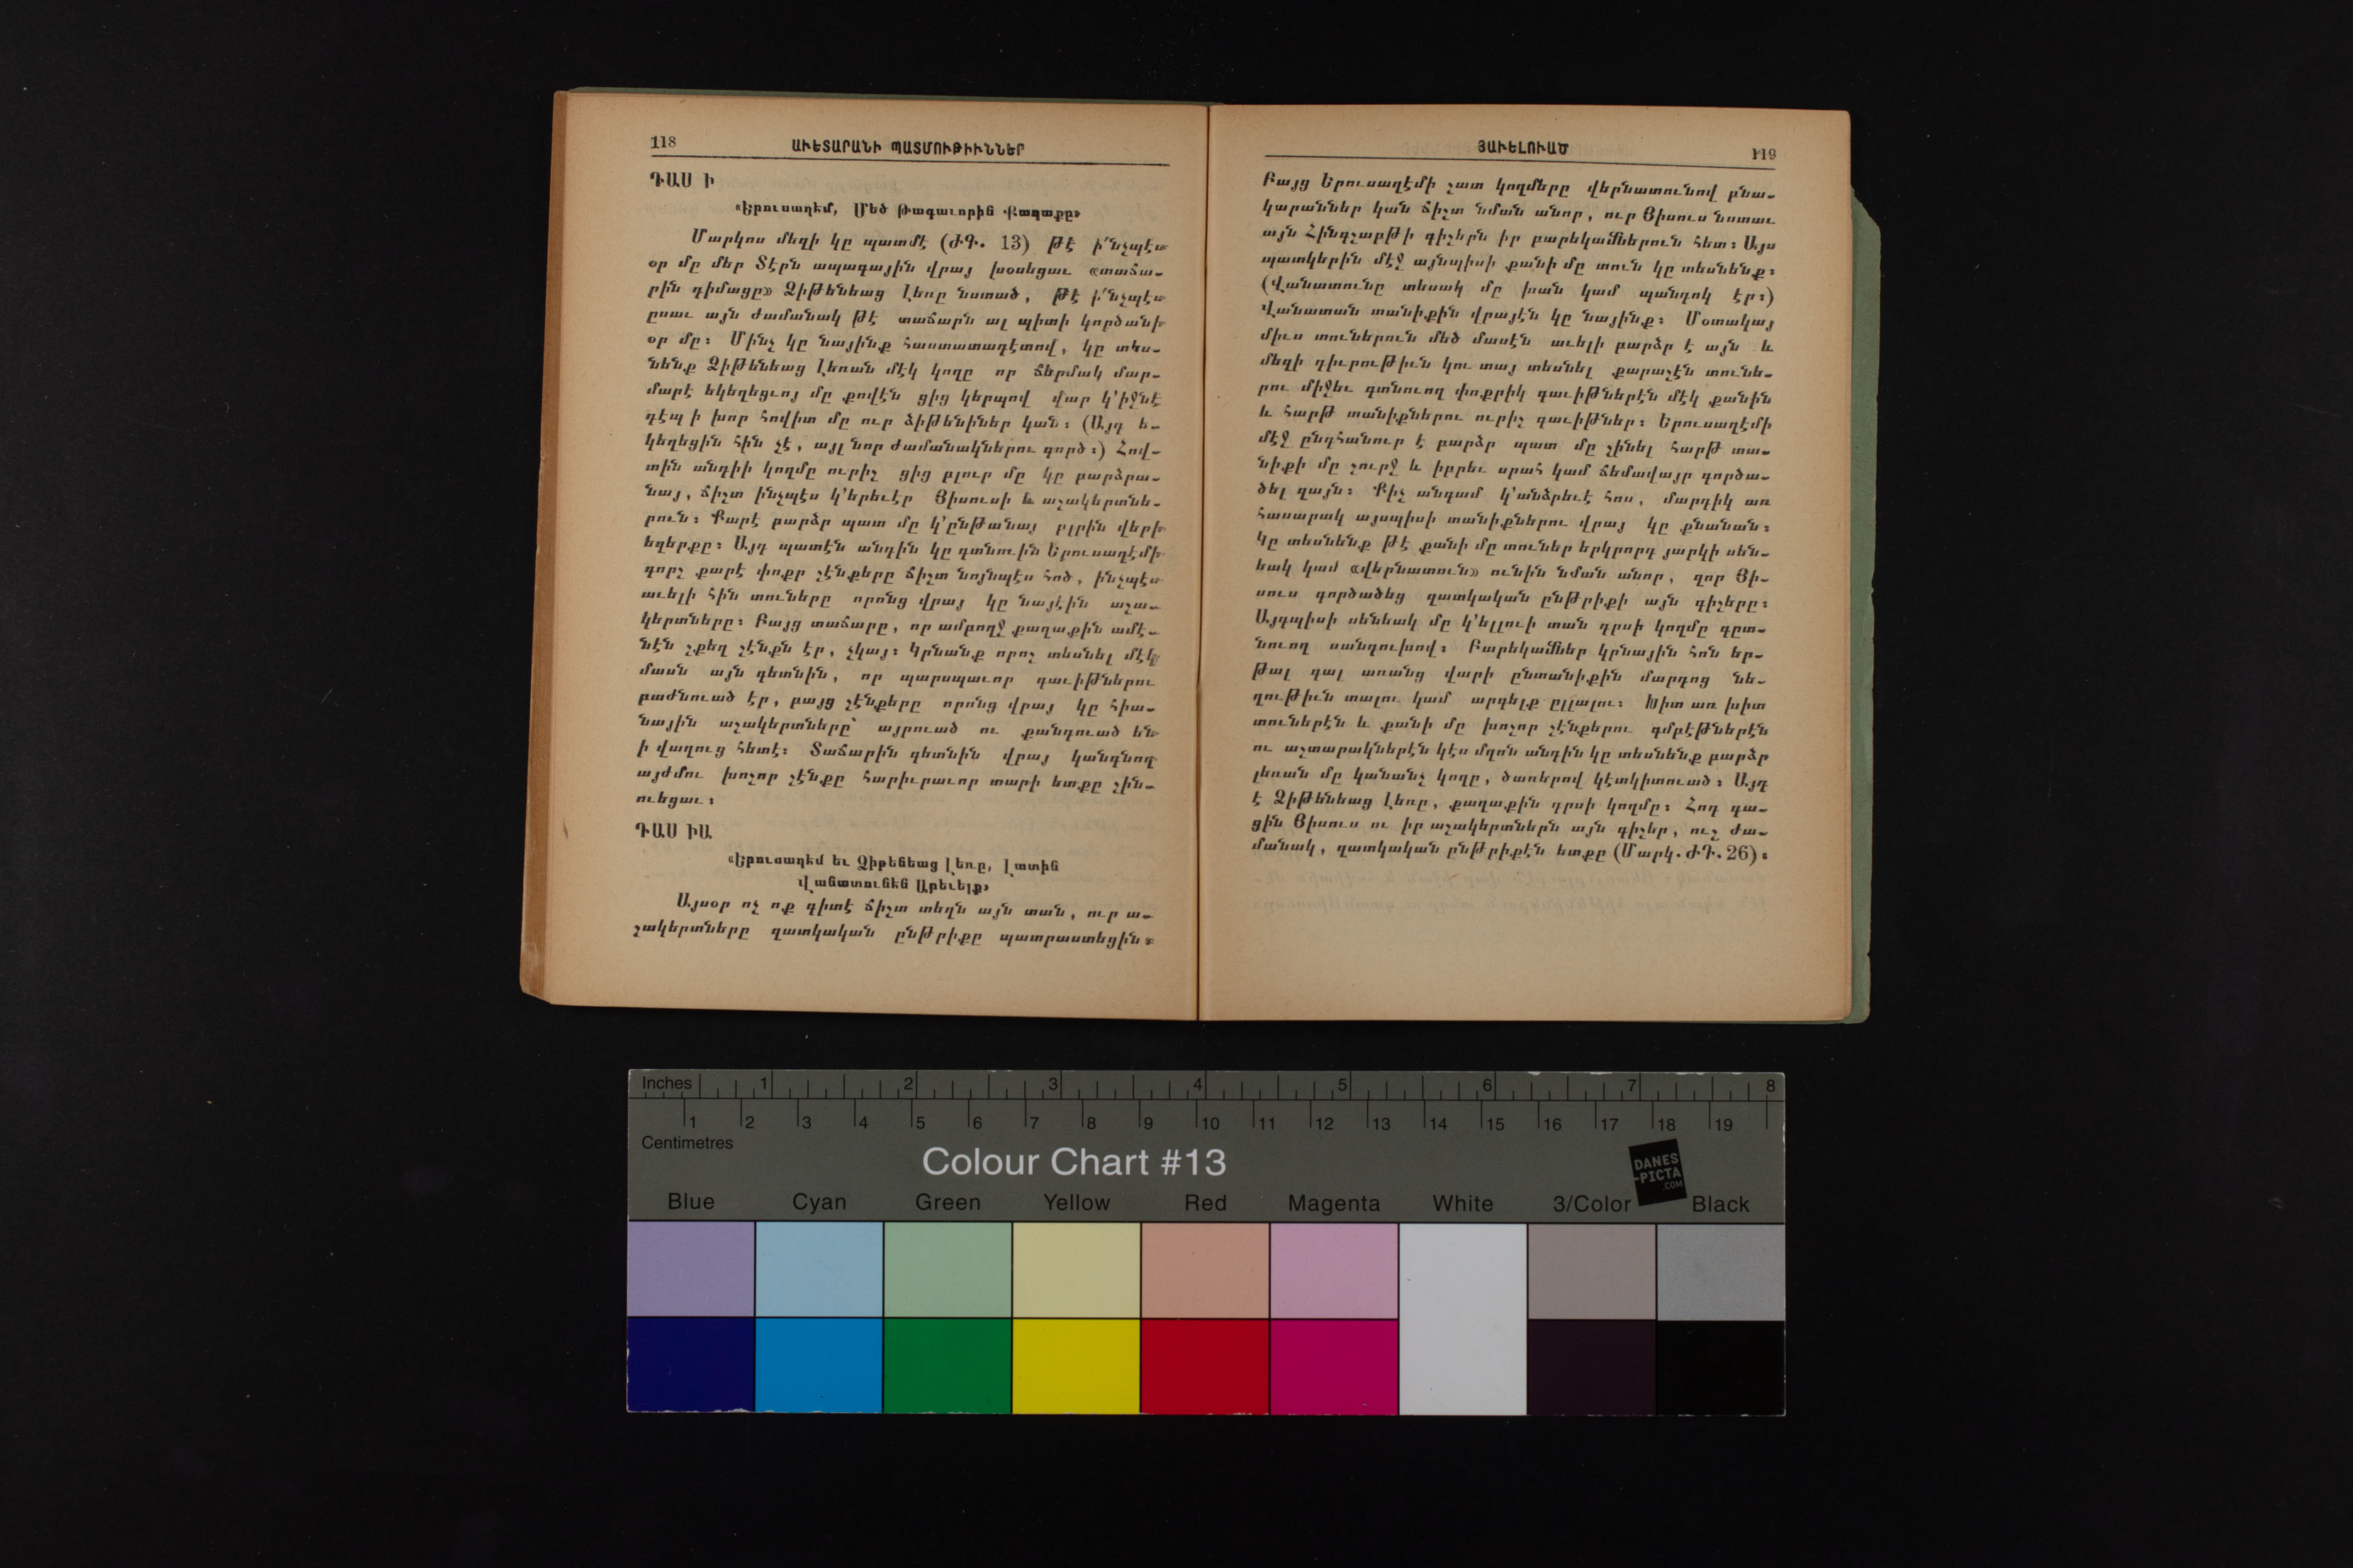 118
ԱՒԵՏԱՐԱՆԻ ՊԱՏՄՈՒԹԻՒՆՆԵՐ
ԴԱՍ Ի
«Երուսաղէմ, Մեծ Թագաւորին Քաղաքը»
Մարկոս մեզի կը պատմէ (ԺԳ. 13) թէ ի՛նչպէս
օր մը մեր Տէրն ապագային վրայ խօսեցաւ «տաճա-
րին դիմացը» Ձիթենեաց լեռը նստած, թէ ի՛նչպէս
ըսաւ այն ժամանակ թէ տաճարն ալ պիտի կործանի
օր մը։ Մինչ կը նայինք հաստատադէտով, կը տես-
նենք Ձիթենեաց լեռան մէկ կողը որ ճերմակ մար-
մարէ եկեղեցւոյ մը քովէն ցից կերպով վար կ՚իջնէ
դէպ ի խոր հովիտ մը ուր ձիթենիներ կան։ (Այդ ե-
կեղեցին հին չէ, այլ նոր ժամանակներու գործ։) Հով-
տին անդիի կողմը ուրիչ ցից բլուր մը կը բարձրա-
նայ, ճիշտ ինչպէս կ՚երեւէր Յիսուսի և աշակերտնե-
րուն։ Քարէ բարձր պատ մը կ՚ընթանայ բլրին վերի
եզերքը։ Այդ պատէն անդին կը գտնուին Երուսաղէմի
գորշ քարէ փոքր շէնքերը ճիշտ նոյնպէս հոծ, ինչպէս
աւելի հին տուները որոնց վրայ կը նայէին աշա-
կերտները։ Բայց տաճարը, որ ամբողջ քաղաքին ամէ-
նէն շքեղ շէնքն էր, չկայ։ Կրնանք որոշ տեսնել մէկ
մասն այն գետնին, որ պարսպաւոր գաւիթներու
բաժնուած էր, բայց շէնքերը որոնց վրայ կը հիա-
նային աշակերտները՝ այրուած ու քանդուած են
ի վաղուց հետէ։ Տաճարին գետնին վրայ կանգնող
այժմու խոշոր շէնքը հարիւրաւոր տարի ետքը շին-
ուեցաւ։
ԴԱՍ ԻԱ
«Երուսաղէմ եւ Ձիթենեաց Լեռը, Լատին
Վանատունէն Արեւելք»
Այսօր ոչ ոք գիտէ ճիշտ տեղն այն տան, ուր ա-
շակերտները զատկական ընթրիքը պատրաստեցին։
ՅԱՒԵԼՈՒԱԾ
119
Բայց Երուսաղէմի շատ կողմերը վերնատունով բնա-
կարաններ կան ճիշտ նման անոր, ուր Յիսուս նստաւ
այն Հինգշաբթի գիշերն իր բարեկամներուն հետ։ Այս
պատկերին մէջ այնպիսի քանի մը տուն կը տեսնենք։
(Վանատունը տեսակ մը խան կամ պանդոկ էր։)
Վանատան տանիքին վրայէն կը նայինք։ Մօտակայ
միւս տուներուն մեծ մասէն աւելի բարձր է այն և
մեզի դիւրութիւն կու տայ տեսնել քարաշէն տունե-
րու միջեւ գտնուող փոքրիկ գաւիթներէն մէկ քանին
և հարթ տանիքներու ուրիշ գաւիթներ։ Երուսաղէմի
մէջ ընդհանուր է բարձր պատ մը շինել հարթ տա-
նիքի մը շուրջ և իբրեւ սրահ կամ ճեմավայր գործա-
ծել զայն։ Քիչ անգամ կ՚անձրեւէ հոս, մարդիկ առ
հասարակ այսպիսի տանիքներու վրայ կը քնանան։
Կը տեսնենք թէ քանի մը տուներ երկրորդ յարկի սեն-
եակ կամ «վերնատուն» ունին նման անոր, զոր Յի-
սուս գործածեց զատկական ընթրիքի այն գիշերը։
Այդպիսի սենեակ մը կ՚ելլուի տան դրսի կողմը գըտ-
նուող սանդուխով։ Բարեկամներ կրնային հոն եր-
թալ գալ առանց վարի ընտանիքին մարդոց նե-
ղութիւն տալու կամ արգելք ըլլալու։ Խիտ առ խիտ
տուներէն և քանի մը խոշոր շէնքերու գմբէթներէն
ու աշտարակներէն կէս մղոն անդին կը տեսնենք բարձր
լեռան մը կանանչ կողը, ծառերով կէտկիտուած։ Այդ
է Ձիթենեաց լեռը, քաղաքին դրսի կողմը։ Հոդ գա-
ցին Յիսուս ու իր աշակերտներն այն գիշեր, ուշ ժա-
մանակ, զատկական ընթրիքէն ետքը (Մարկ. ԺԴ. 26)։
Inches 1 2 3 4 5 6 7 8
1 2 3 4 5 6 7 8 9 10 11 12 13 14 15 16 17 18 19
Centimetres
Colour Chart #13
DANES
-PICTA
.COM
Blue Cyan Green Yellow Red Magenta White 3/Color Black